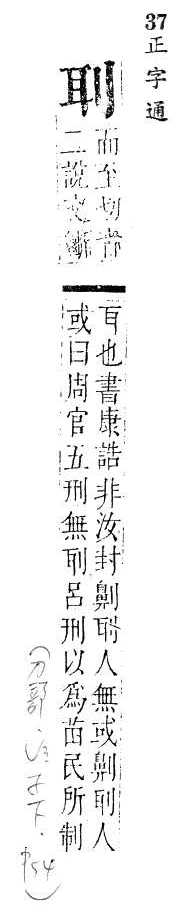 37
正字通
刵
而至切音
二說文斷
耳也書康誥非汝封劓刵人無或劓刵人
或曰周官五刑無刵呂刑以為苗民所制
(刀部.
下.
P54)